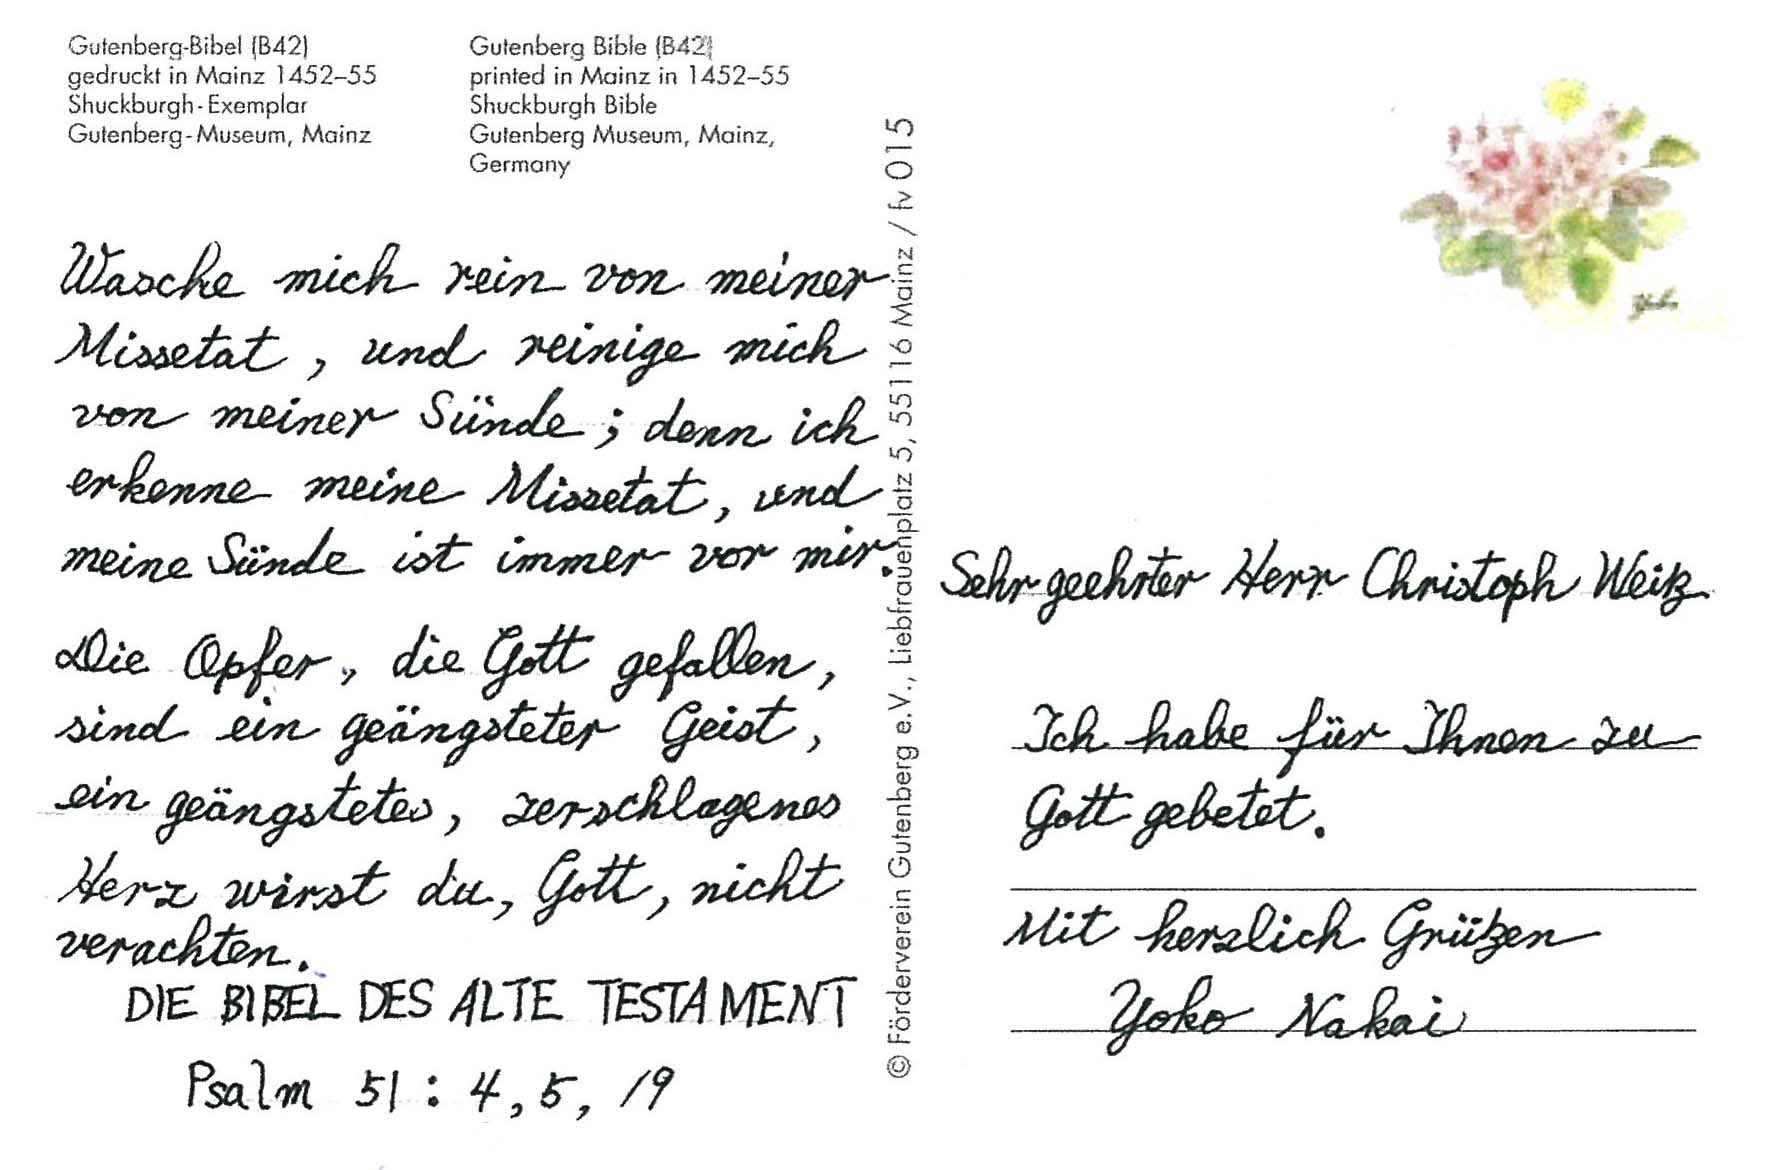 Gutenberg-Bibel (B42)
gedruckt in Mainz 1452–55
Shuckburgh-Exemplar
Gutenberg-Museum, Mainz
Gutenberg Bible (B42)
printed in Mainz in 1452–55
Shuckburgh Bible
Gutenberg Museum, Mainz,
Germany
Wasche mich rein von meiner
Missetat, und reinige mich
von meiner Sünde; denn ich
erkenne meine Missetat, und
meine Sünde ist immer vor mir.
Die Opfer, die Gott gefallen,
sind ein geängsteter Geist,
ein geängstetes, zerschlagenes
Herz wirst du, Gott, nicht
verachten.
DIE BIBEL DES ALTE TESTAMENT
Psalm 51: 4, 5, 19
© Förderverein Gutenberg e.V., Liebfrauenplatz 5, 55116 Mainz / fv 015
Yoko
Sehr geehrter Herr Christoph Weiß
Ich habe für Ihnen zu
Gott gebetet.
Mit herzlich Grüßen
Yoko Nakai